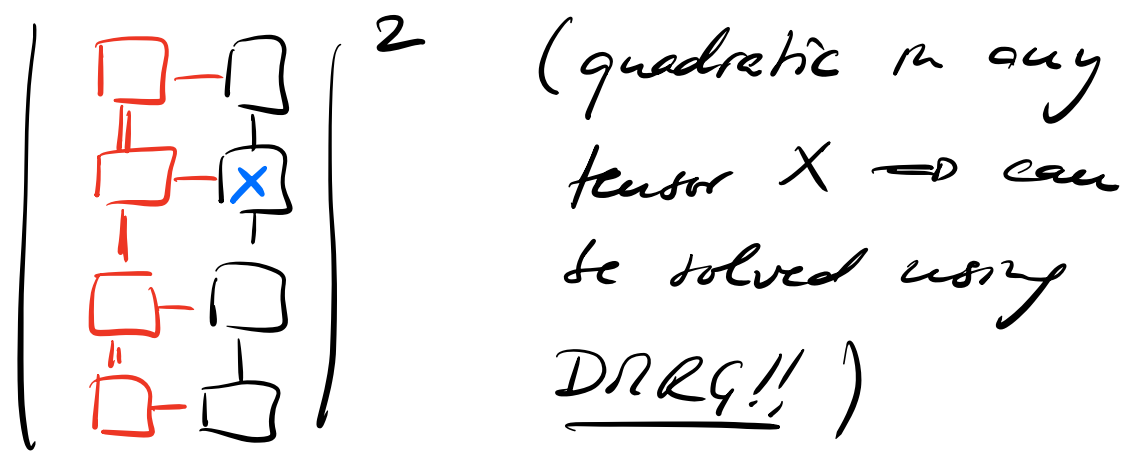 2
(quadratic in any
X
tensor X ⇒ can
be solved using
DMRG!! )